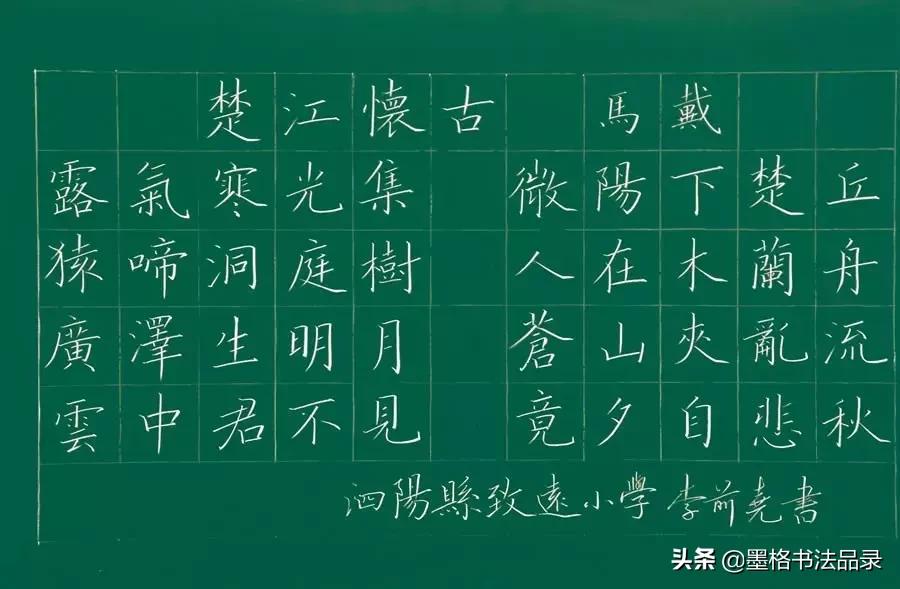 楚江懷古 馬戴
露氣寒光集 微陽下楚丘
猿啼洞庭樹 人在木蘭舟
廣澤生明月 蒼山夾亂流
雲中君不見 竟夕自悲秋
泗陽縣致遠小學 李前堯書
头条 @墨格书法品录